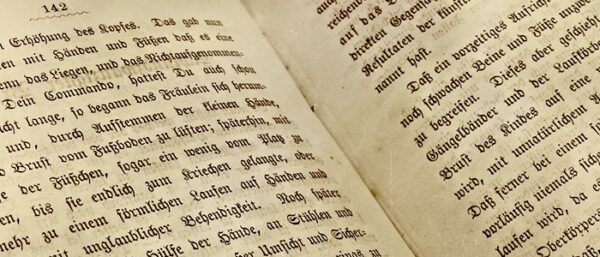 142
Erhöhung des Kopfes. Das gab nun
mit Händen und Füßen daß es eine
das Liegen, und das Nichtaufgenommen-
Dein Commando, hattest Du auch schon
lange, so begann das Fräulein sich herum-
und, durch Aufstemmen der kleinen Hände,
Brust vom Fußboden zu lüften; späterhin, mit
der Füßchen, sogar ein wenig vom Platz zu
bis sie endlich zum Kriechen gelangte, oder
zu einem förmlichen Laufen auf Händen und
mit unglaublicher Behendigkeit. Noch später
Hülfe der Hände, an Stühlen und
Umsicht und Sicher-
auf das
direkten Gegen
Resultaten der
nannt hast.
Daß ein vorzeitiges Aufricht
noch schwachen Beine und Füße
zu begreifen. Dieses aber geschieht
Gängelbänder und der Laufkörbe
Brust des Kindes auf eine
wird, mit unnatürlichen
Daß ferner bei einem
vorläufig niemals sich
laufen wird, da es
Oberkörper